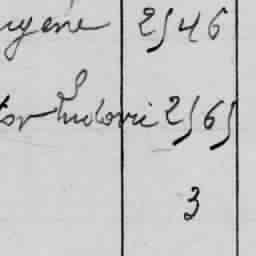 ugène 2546
tor Ludovic 2565
3